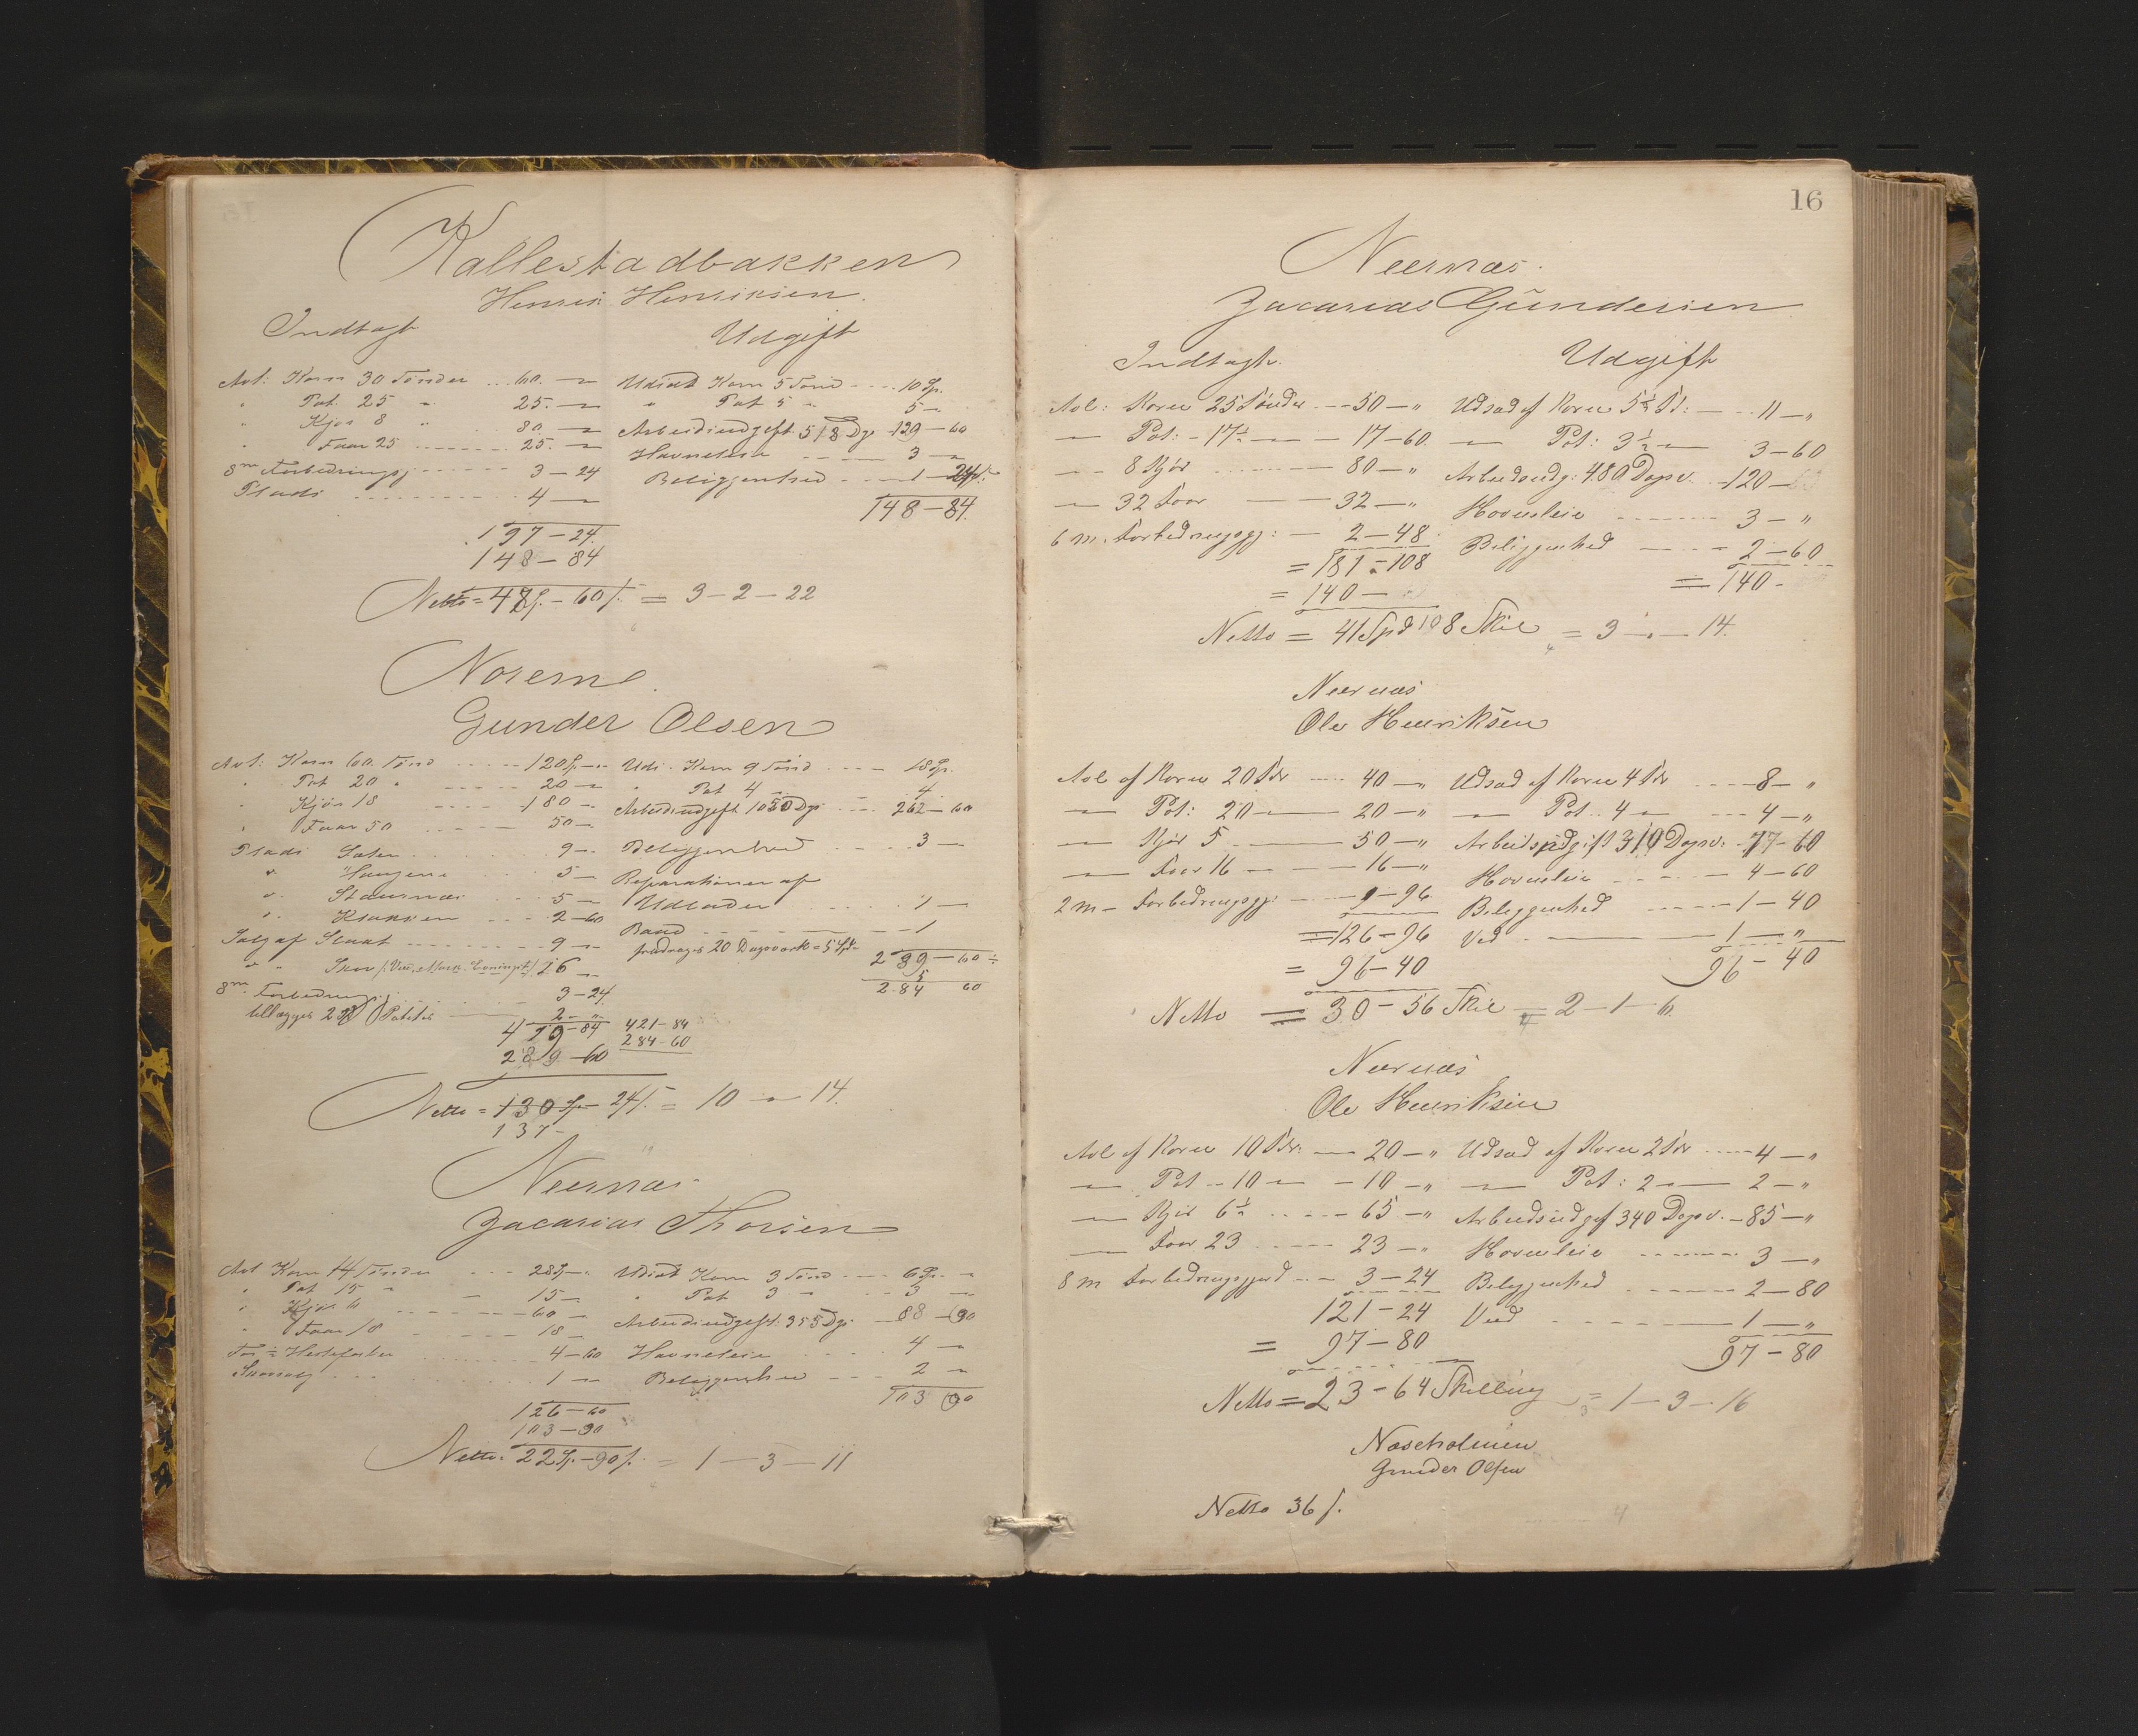 Kallestadbakken
Henrik Henriksen.
Indtægt Udgift
Avl: Korn 30 Tønder 60. — Udsæd Korn 5 Tønd 10 Sp.
" Pot. 25 " 25. — " Pot 5 " 5 —
" Kjør 8 " 80. — Arbeidsudgift. 518 Dgv 129—60
" Faar 25 25. — Havneleie 3 —
8m Forbedringsgj 3—24 Beliggenhed 1—24
Plads 4 — 148—84.
197—24.
148—84
Netto = 48 Sp.—60 s. = 3—2—22
Norene
Gunder Olsen
Avl: Korn 60. Tønd 120 Sp.— Uds. Korn 9 Tønd 18 Sp.
" Pot 20 " 20 — " Pot 4 4.
" Kjør 18 180 — Arbeidsudgift 1050 Dgv 262—60
" Faar 50 50 —
Plads Sæter 9 — Beliggenhed 3 —
" Haugene 5 — Reparationer af
" Staurnæs 5 — Udlader 1 —
" Klakken 2—60 Baad 1
Salg af Slaat 9 — fradrages 20 Dagsværk = 5 Spd. 289—60
" " Skov 16 — 5
8m. Forbedringsgj. 3—24. 2.84 60
tillægges 2 Poteter 2—"
419—84 421—84
289—60 284—60
Netto = 130 Sp— 24 s. = 10 — 14.
137—
Neernæs
Zacarias Thorsen
Avl Korn 14 Tønder 28 Sp— Udsæd Korn 3 Tønd 6 Sp. —
" Pot 15 " 15 — " Pot 3 " 3 —
" Kjør 6 60 — Arbeidsudgift. 355 Dgv. 88—90
" Faar 18 18 —
For ½ Hestefoster 4—60 Havneleie 4 —
Skovsalg 1 — Beliggenhed 2 —
126—60 103 90
103—90
Netto = 22 Sp.—90 s. = 1—3—11
16
Neernæs.
Zacarias Gundersen
Indtægt. Udgift
Avl: Korn 25 Tønder 50—" Udsæd af Korn 5½ Td: 11—"
— Pot: 17½ — 17—60. — Pot: 3½ — 3—60
— 8 Kjør 80—" Arbeidsudg: 480 Dagsv. 120—
— 32 Faar 32—" Havneleie 3—"
6 m. Forbedringsgj: 2—48 Beliggenhed 2—60
= 181—108 = 140—
= 140—
Netto = 41 Spd 108 Skil = 3—"—14.
Neernæs
Ole Henriksen
Avl af Korn 20 Tdr 40—" Udsæd af Korn 4 Tdr 8—"
— Pot: 20 — 20—" — Pot. 4 — 4—"
— Kjør 5 50—" Arbeidsudgift 310 Dagsv: 77—60
— Faar 16 — 16—" Havneleie 4—60
2 m— Forbedringsgj: "—96 Beliggenhed 1—40
= 126—96 Ved 1—"
= 96—40 96—40
Netto = 30—56 Skil = 2—1—6.
Neernæs
Ole Henriksen
Avl af Korn 10 Tdr: 20—" Udsæd af Korn 2 Tdr 4—"
— Pot 10 — 10—" — Pot: 2 — 2—"
— Kjør 6½ 65—" Arbeidsudgift 340 Dagsv. 85—"
— Faar 23 23—" Havneleie 3—"
8 m Forbedringsgjød 3—24 Beliggenhed 2—80
121—24 Ved 1—"
= 97—80 97—80
Netto = 23—64 Skilling = 1—3—16
Næsholmen
Gunder Olsen
Netto 36 s.